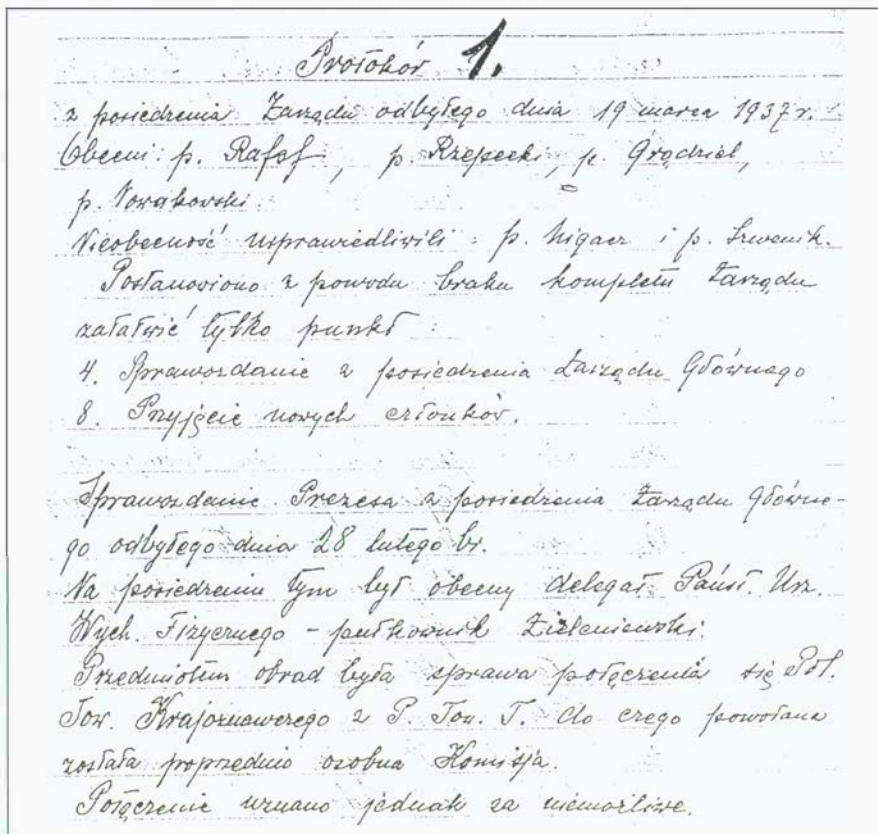 Protokół 1.
z posiedzenia Zarządu odbytego dnia 19 marca 1937 r.
Obecni: p. Rafał, p. Rzepecki, p. Grądziel,
p. Nowakowski.
Nieobecność usprawiedliwili: p. Migacz i p. Szwenik.
Postanowiono z powodu braku kompletu Zarządu
załatwić tylko punkt:
4. Sprawozdanie z posiedzenia Zarządu Głównego
8. Przyjęcie nowych członków.
Sprawozdanie Prezesa z posiedzenia Zarządu Główne-
go odbytego dnia 28 lutego br.
Na posiedzeniu tym był obecny delegat Państ. Urz.
Wych. Fizycznego - pułkownik Zieleniewski.
Przedmiotem obrad była sprawa połączenia się Pol.
Tow. Krajoznawczego z P. Tow. T. do czego powołana
została poprzednio osobna Komisja.
Połączenie uznano jednak za niemożliwe.